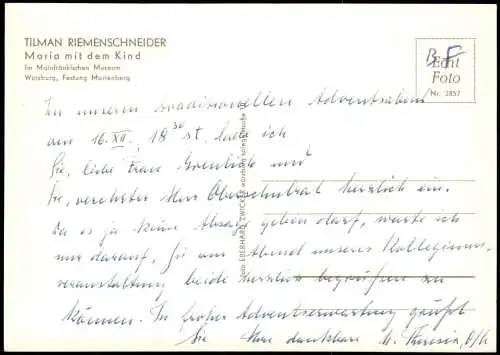 TILMAN RIEMENSCHNEIDER
Maria mit dem Kind
Im Mainfränkischen Museum
Würzburg, Festung Marienberg
B F
Echt
Foto
Nr. 2857
Zu unserem traditionellen Adventsabend
am 16. XII. 18 30 st. lade ich
Sie, liebe Frau und
Sie, verehrter Herr Oberschulrat herzlich ein.
Da es ja keine Absage geben darf, warte ich
nur darauf, Sie am Abend unseres Kollegiums-
veranstaltung beide herzlich begrüßen zu
können. In froher Adventserwartung grüßt
Sie Ihre dankbare M. Theresia
Foto EBERHARD ZWICKER Würzburg